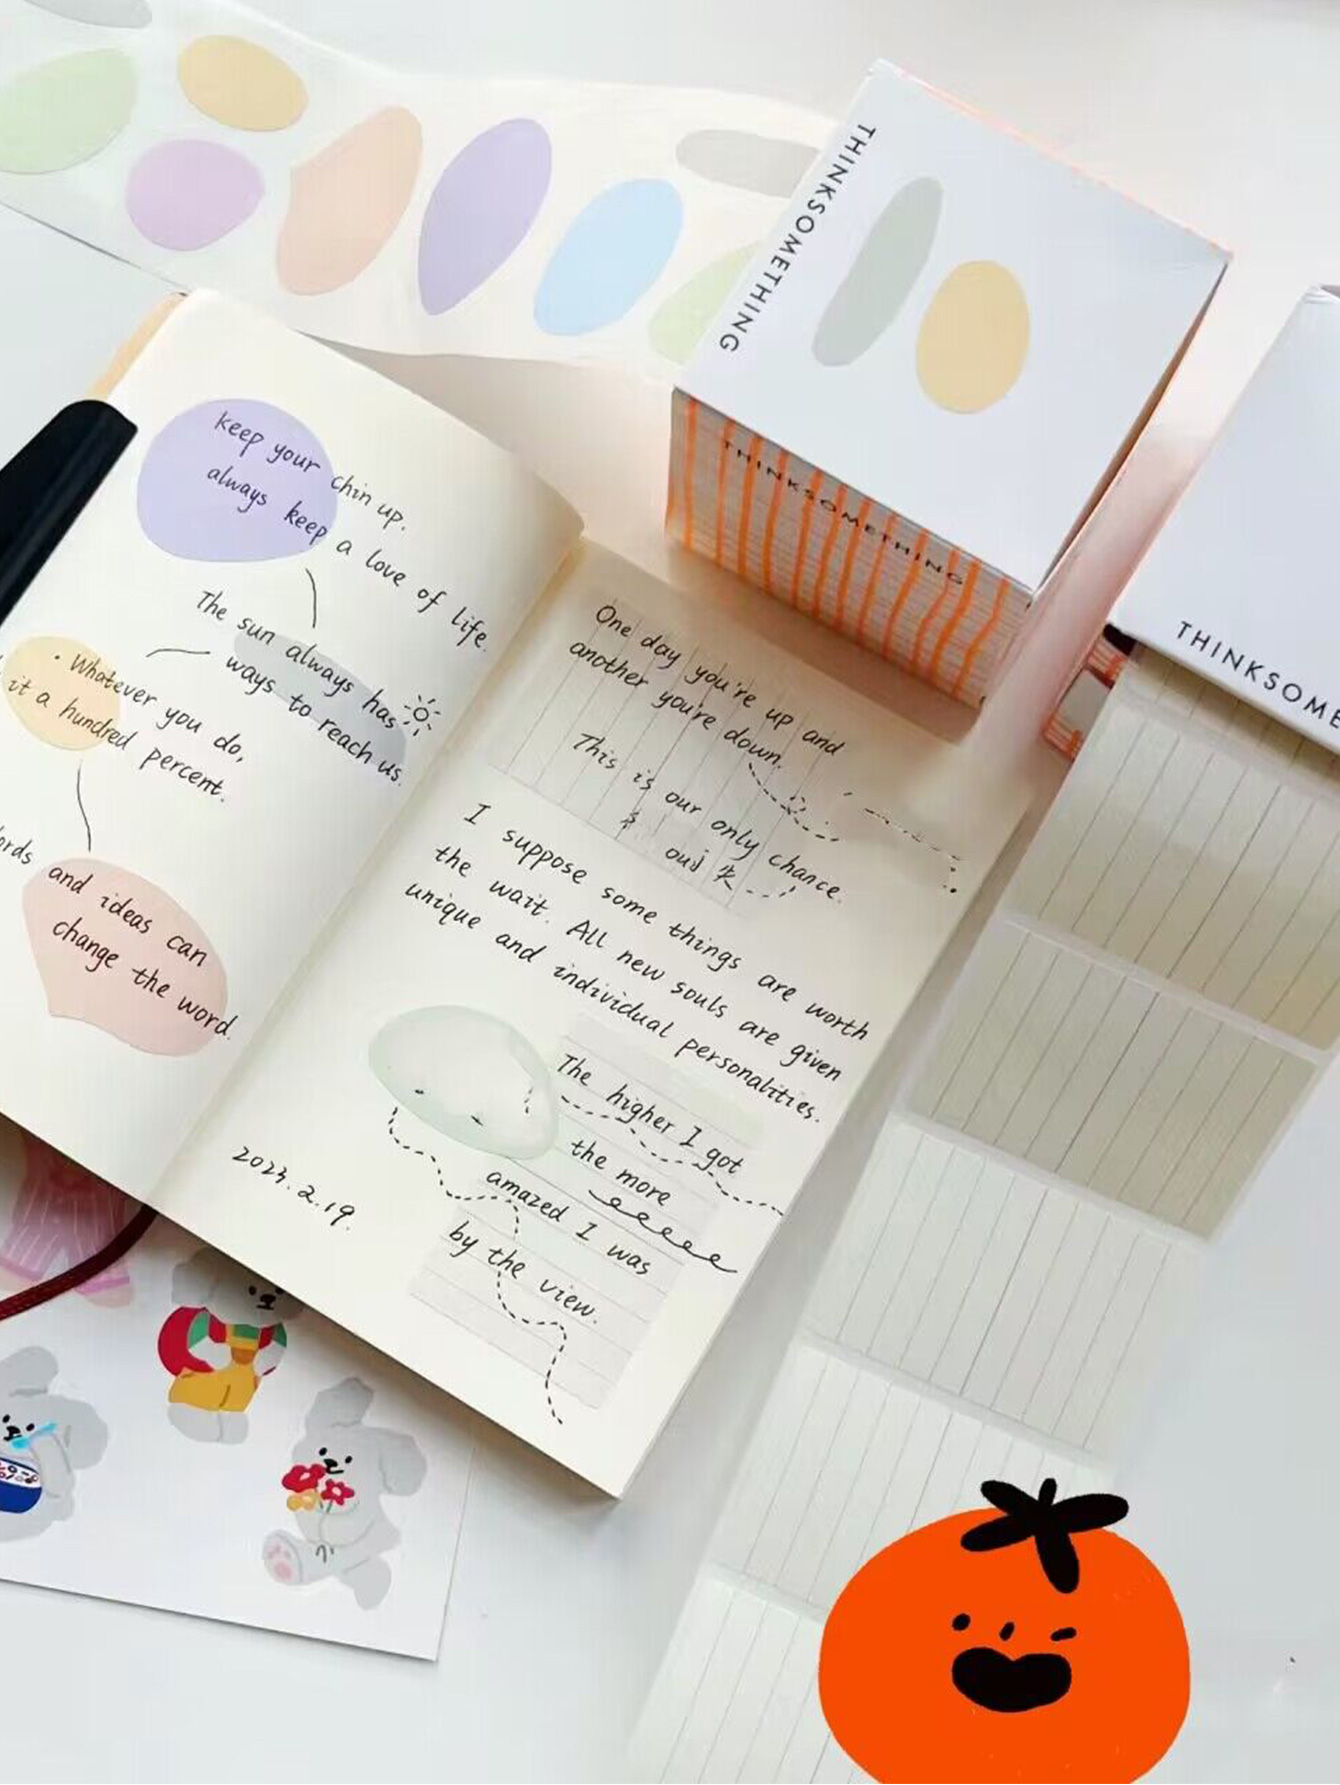 THINKSOMETHING
THINKSOMETHING
THINKSOME
keep your chin up.
always keep a love of life.
The sun always has
ways to reach us.
· Whatever you do,
it a hundred percent.
and ideas can
change the word.
One day you're up and
another you're down.
This is our only chance.
I suppose some things are worth
the wait. All new souls are given
unique and individual personalities.
The higher I got
the more
amazed I was
by the view.
2.19.